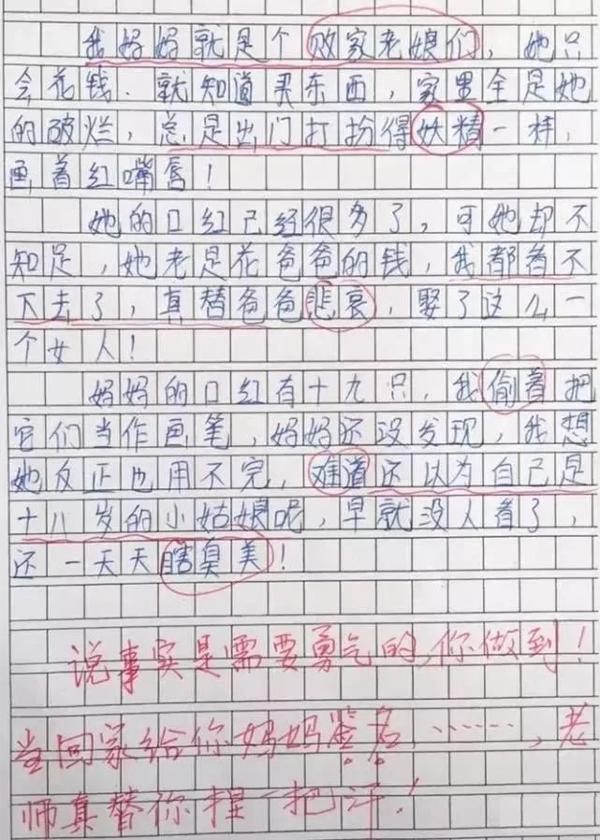 我妈妈就是个败家老娘们，她只
会花钱．就知道买东西，家里全是她
的破烂，总是出门打扮得妖精一样，
画着红嘴唇！
她的口红已经很多了，可她却不
知足，她老是花爸爸的钱，我都看不
下去了，真替爸爸悲哀，娶了这么一
个女人！
妈妈的口红有十九只，我偷着把
它们当作画笔，妈妈还没发现，我想
她反正也用不完，难道还以为自己是
十八岁的小姑娘呢，早就没人看了，
还一天天瞎臭美！
说事实是需要勇气的，你做到！
当回家给你妈妈签名……，老
师真替你捏一把汗！